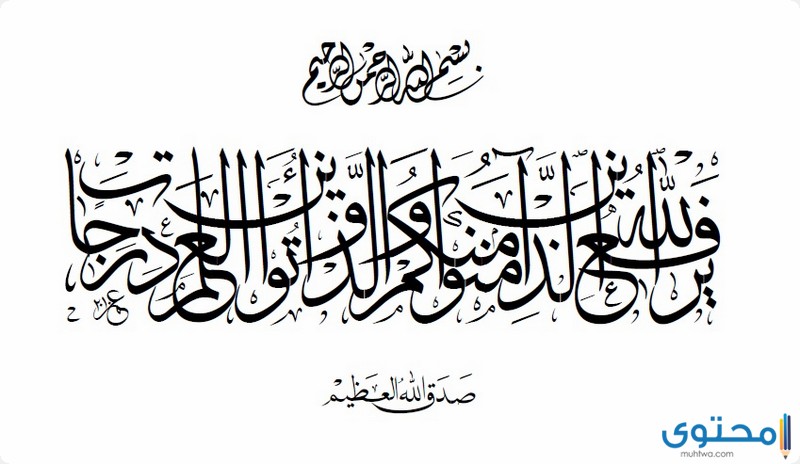 بسم الله الرحمن الرحيم
يرفع الله الذين آمنوا منكم والذين أوتوا العلم درجات
صدق الله العظيم
محتوى
muhtwa.com